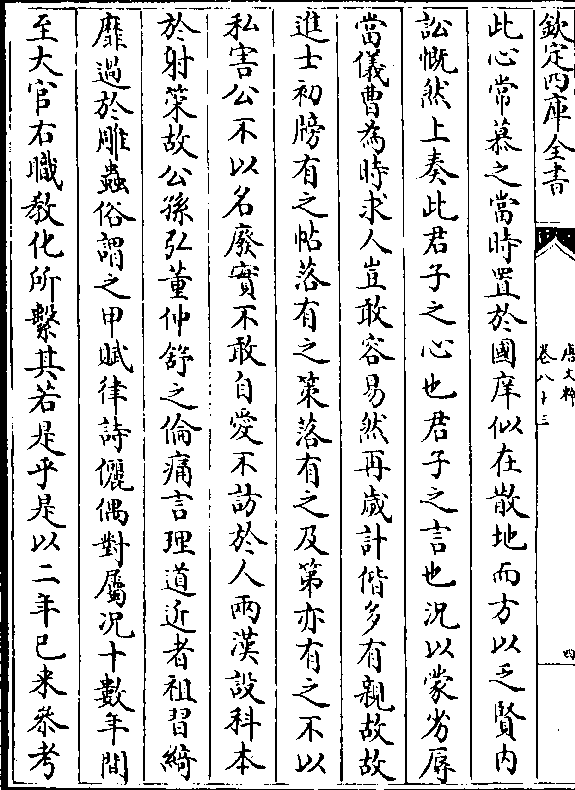 欽定四庫全書
唐文粹
卷八十三
四
此心常慕之當時置於國庠似在散地而方以乏賢内
訟慨然上奏此君子之心也君子之言也況以蒙劣辱
當儀曹為時求人豈敢容易然再歲計偕多有親故故
進士初牓有之帖落有之策落有之及第亦有之不以
私害公不以名廢實不敢自愛不訪於人兩漢設科本
於射策故公孫弘董仲舒之倫痛言理道近者祖習綺
靡過於雕蟲俗謂之甲賦律詩儷偶對屬况十數年間
至大官右職教化所繫其若是乎是以二年已来叅考